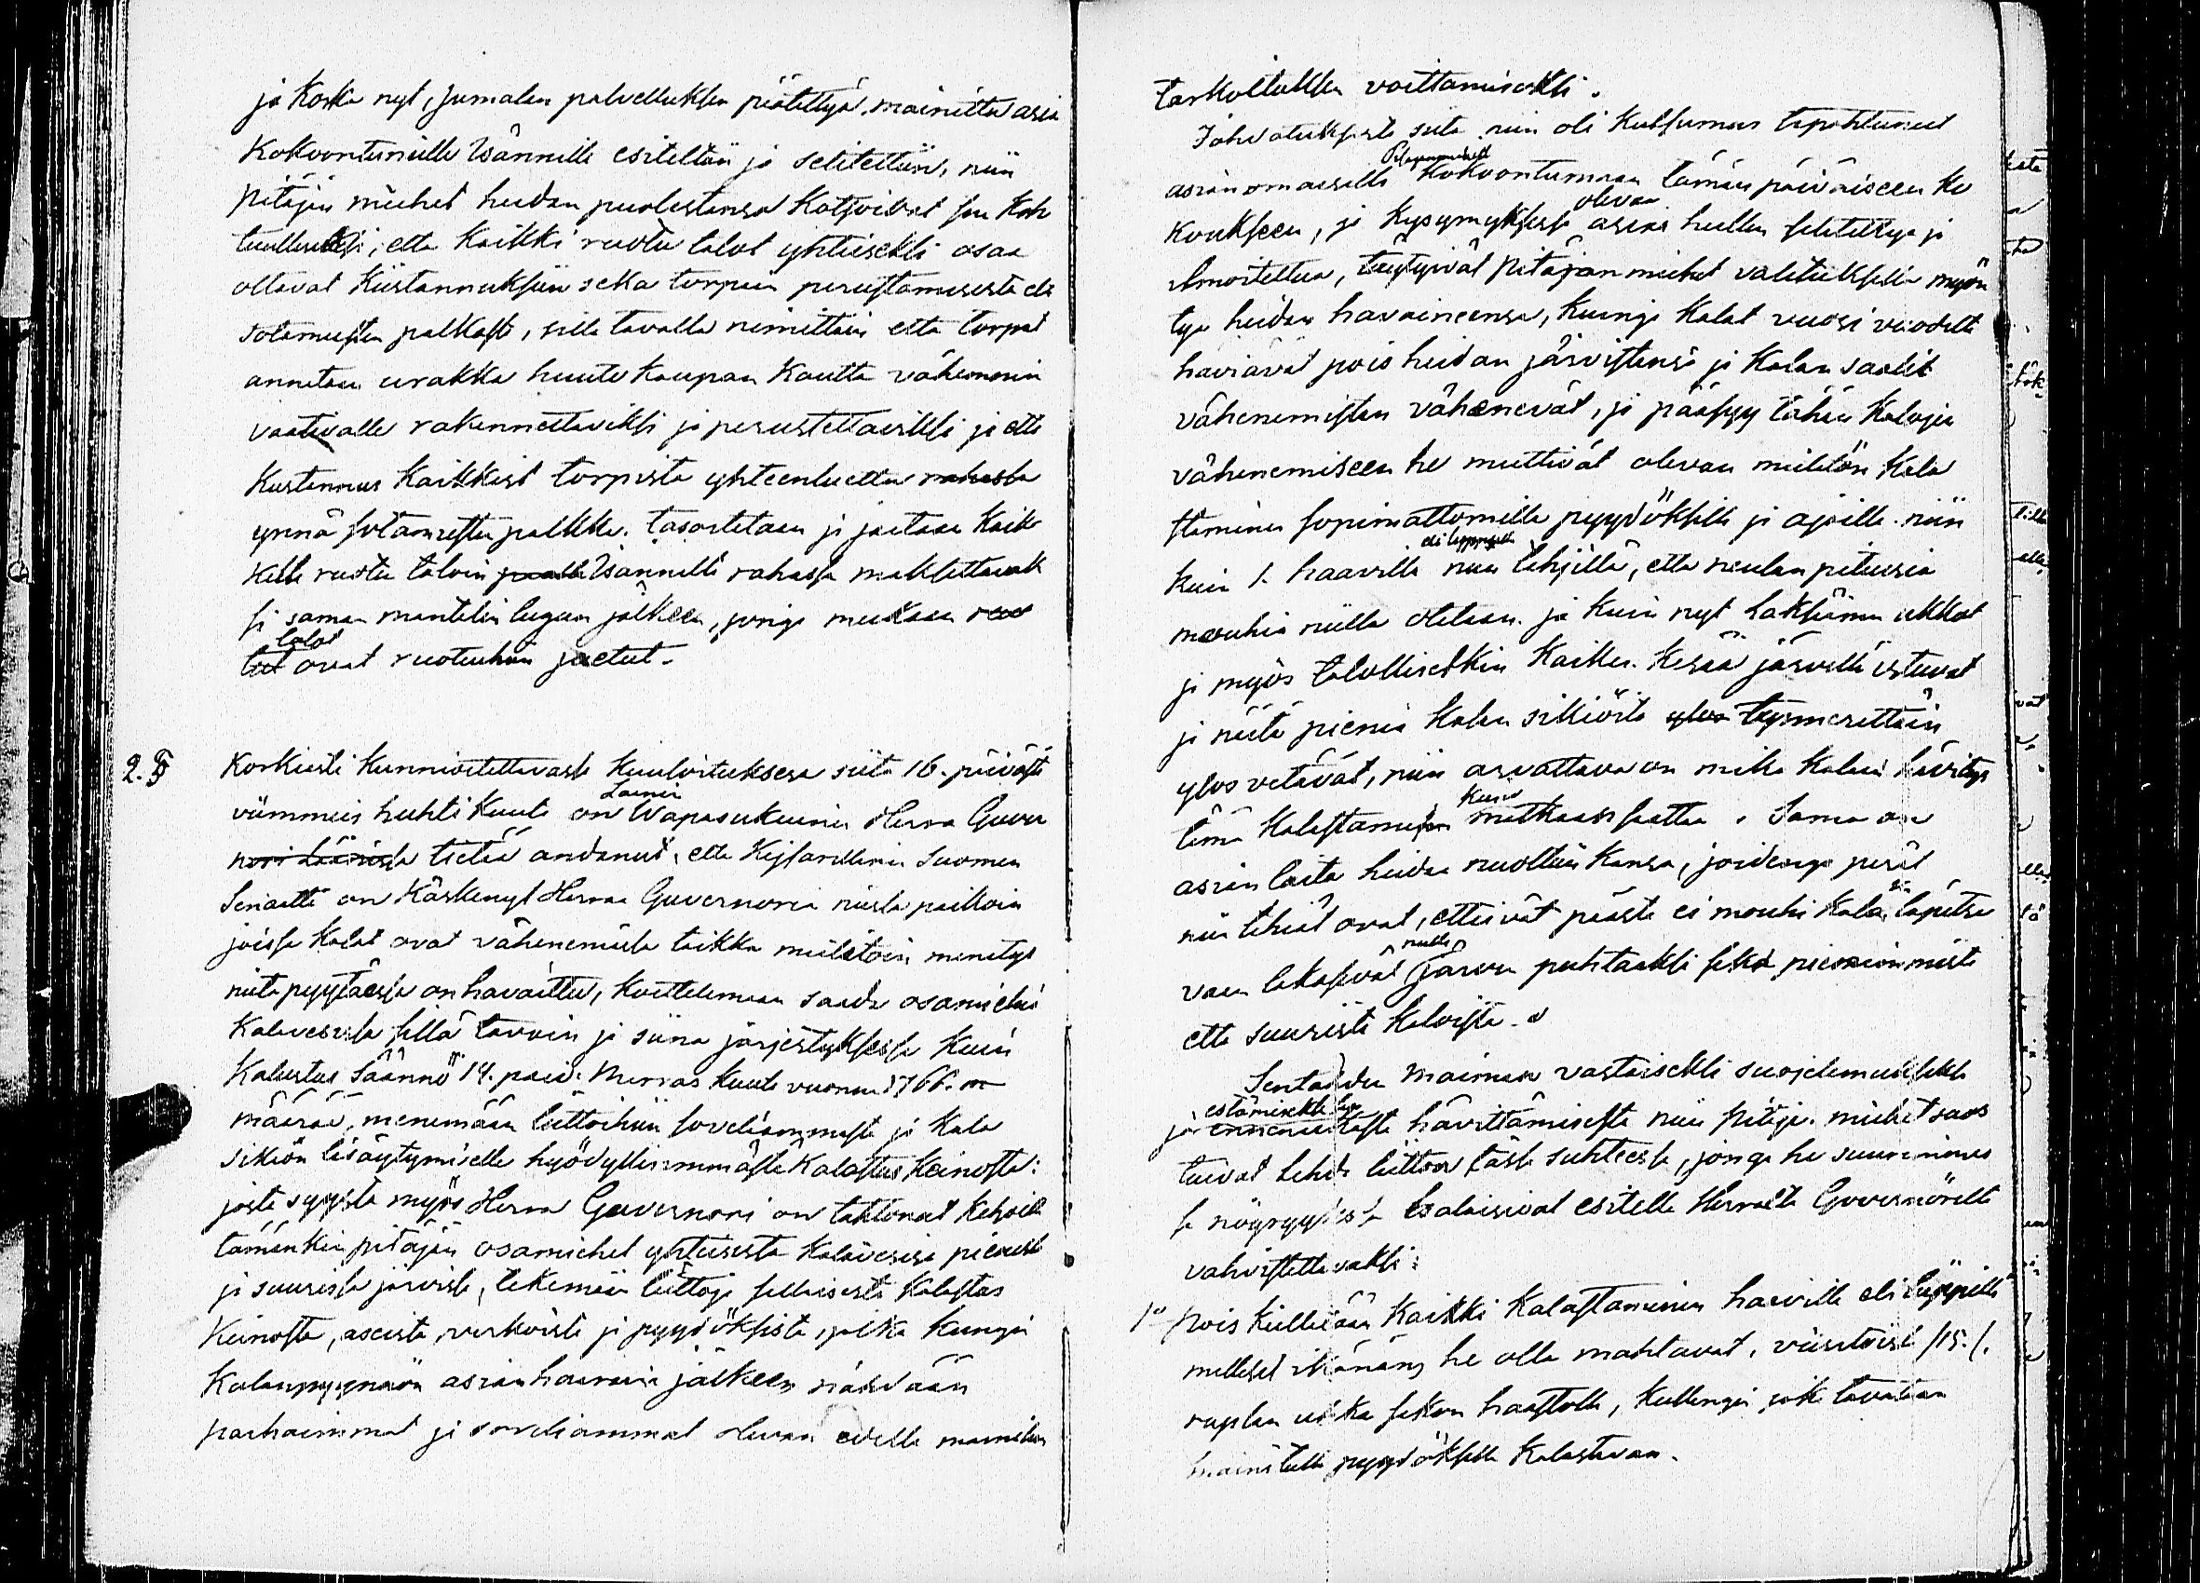 ja koska nyt, Jumalan palveluksen päätettyä, mainittu asia
Kokoontuneille Isännille esiteltiin ja selitettiin, niin
Pitäjän miehet heidän puolestansa katsoivat sen koh
tuulliseksi, että kaikki ruotu talot yhteisekti osaa
ottavat kustannuksiin sekä torpan perustamisesta eli
Sotamiesten palkasta, sillä tavalla nimittäin että torpat
annetaan urakka huuto kaupan kautta vähemmin
vaativalle rakennettaviksi ja perustettaviksi ja että
Kustannus kaikkist torpista yhteenluettu rahasta
ynnä sotamiesten palkka, tasoitetaan ja jaetaan kaik
kille ruotu taloin Isännille rahassa maksettavak
si saman mantalin luvun jälkeen, jonga mukaan ruo
talot
tut ovat ruotuihin jaetut.
2. §
Korkiasti kunnioitettavasta Kuuloituksesa siitä 16. päivästä
viimmeis huhti kuuta on Wapasukuinen Herra Guver
Läänin
nöri Läänissä tietää andanut, että Keisarillinen Suomen
Senaatti on Käskenyt Herraa Guvernöria niistä paikoin
joissa Kalat ovat vähenemästä taikka mielitöin menetys
niitä pyytäessä on havaittu, koettelemaan saada osamiehiä
Kalavesistä sillä tavoin ja siinä järjestyksessä kuin
Kalustus Säännö 14. päiv. Marras kuuta vuonna 1766. on
määrää, menemään liittoihin soveliaammasta ja kala
sikiön lisäytymiselle hyödyllisimmästä Kalastus Keinosta:
josta syystä myös Herra Guvernöri on tahtonut kehoit
tämänkin pitäjän osamiehet yhteisistä Kalavesisä pienistä
ja suurista järvistä, tekemään liittoja sellaisesta Kalastus
Keinosta, aseista, verkoista ja pyydöksistä, jotka kungin
Kalanpyynnön asianhaarain jälkeen nähdään
parhaimmat ja soveliammat olevan edellä mainitun
tarkoituksen voittamiseksi.
Johdatuksesta siitä niin oli kutsumus tapahtunut
Pitäjänmiehet
asianomaisille Kokoontumaan tämän päiväiseen ko
olevan
koukseen, ja kysymyksessä asian heille selitettyä ja
ilmoitettua, täytyivät Pitäjän miehet valituksella myön
tyä heidän havaineensa, kuinga kalat vuosi vuodelta
häviävät pois heidän järvistänsä ja kalan saaliit
vähenemistän vähenevät, ja pääsyy tähän kalojen
vähenemiseen he miettivät olevan mielitön kala
staminen sopimattomilla pyydöksillä ja ajoilla niin
eli lippyillä
kuin 1. haavilla niin tihjillä, että neulan pituisia
mouhia niillä otetaan. ja kuin nyt
ja myös talollisetkin kaiken kesää järvellä istuvat
ja näitä pieniä kalan sikiöitä ylös tynnerittäin
ylös vetävät, niin arvattava on mikä kalan hävitys
kuin
tämä kalastamisen matkaan saattaa. Sama on
asian laita heidän nuottiin kansa, joidenga perät
niin tihiät ovat, etteivät päästä ei mouhi kala läpitse
vaan lakasevat järven puhtaaksi sekä pienimmistä
että suurista kaloista.
Sentähden Maiman vastaiseksi suojelemiseksi
estämiseksi
ja hävittämisestä niin Pitäjän miehet saos
tuivat tehdä liiton tästä suhteesta, jonga he suurimmas
sa nöyryydessä halaisivat esitellä Herralta Guvernörilta
vahvistettavaksi:
1º Pois kielletään kaikki Kalastaminen haavilla eli lippillä
mellsest ikänäns he olla mahtavat, viisitoist /15./.
ruplan uhka sakon haastolla, kullengin joka tavataan
mainitulla pyydöksellä kalastavan.